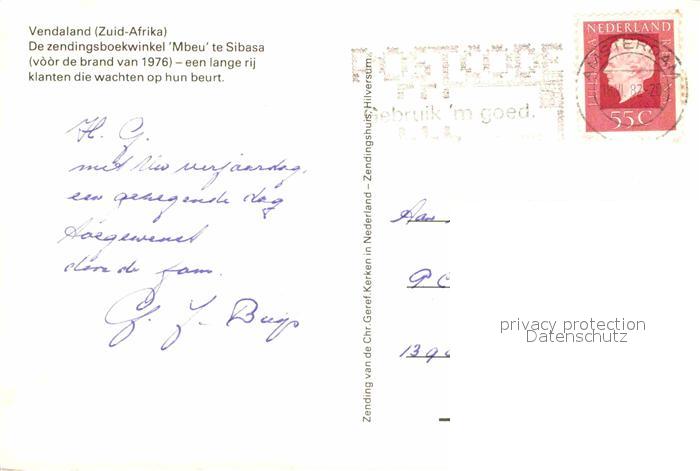 Vendaland (Zuid-Afrika)
De zendingsboekwinkel 'Mbeu' te Sibasa
(vòòr de brand van 1976) – een lange rij
klanten die wachten op hun beurt.
H. G.
met Uw verjaardag.
een gezegende dag
toegewenst
door de fam.
Zending van de Chr. Geref. Kerken in Nederland – Zendingshuis, Hilversum.
POSTCODE
gebruik 'm goed.
AMSTERDAM
82
NEDERLAND
JULIANA REGINA
55 C
Aan
PC
139
privacy protection
Datenschutz